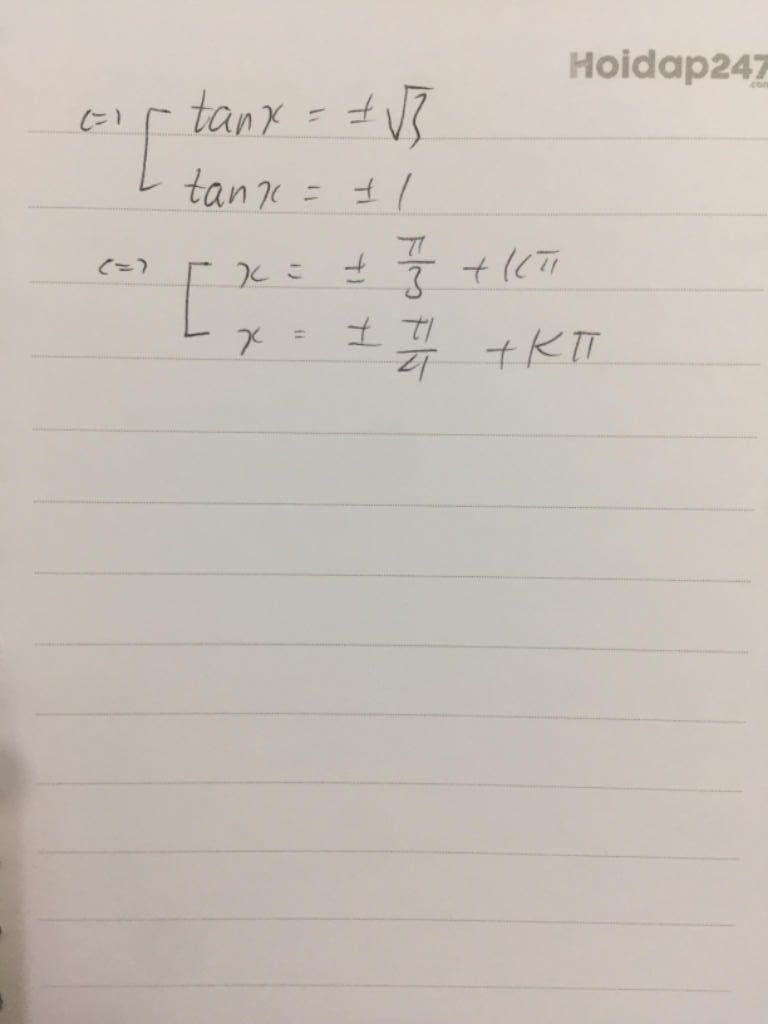 Hoidap247
.com
<=> [ tanx = ± √3
tanx = ± 1
<=> [ x = ± π/3 + kπ
x = ± π/4 + kπ